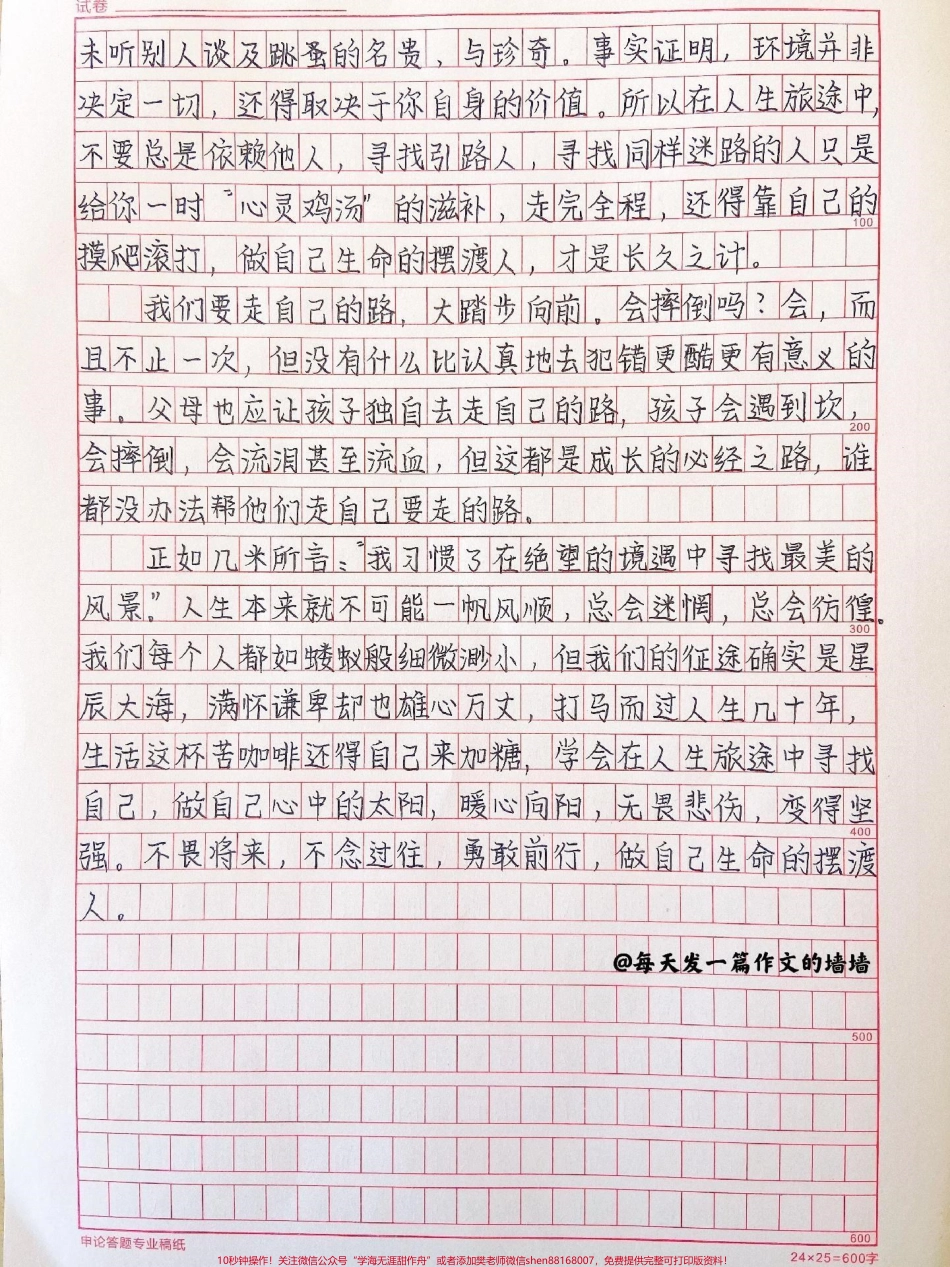 试卷
未听别人谈及跳蚤的名贵、与珍奇。事实证明，环境并非
决定一切，还得取决于你自身的价值。所以在人生旅途中，
不要总是依赖他人，寻找引路人，寻找同样迷路的人只是
给你一时“心灵鸡汤”的滋补，走完全程，还得靠自己的
100
摸爬滚打，做自己生命的摆渡人，才是长久之计。
我们要走自己的路，大踏步向前。会摔倒吗？会，而
且不止一次，但没有什么比认真地去犯错更酷更有意义的
事。父母也应让孩子独自去走自己的路，孩子会遇到坎，
200
会摔倒，会流泪甚至流血，但这都是成长的必经之路，谁
都没办法帮他们走自己要走的路。
正如几米所言：“我习惯了在绝望的境遇中寻找最美的
风景。”人生本来就不可能一帆风顺，总会迷惘，总会彷徨。
300
我们每个人都如蝼蚁般细微渺小，但我们的征途确实是星
辰大海，满怀谦卑却也雄心万丈，打马而过人生几十年，
生活这杯苦咖啡还得自己来加糖，学会在人生旅途中寻找
自己，做自己心中的太阳，暖心向阳，无畏悲伤，变得坚
400
强。不畏将来，不念过往，勇敢前行，做自己生命的摆渡
人。
@每天发一篇作文的墙墙
500
600
申论答题专业稿纸
24×25=600字
10秒钟操作！关注微信公众号“学海无涯甜作舟”或者添加樊老师微信shen88168007，免费提供完整可打印版资料！